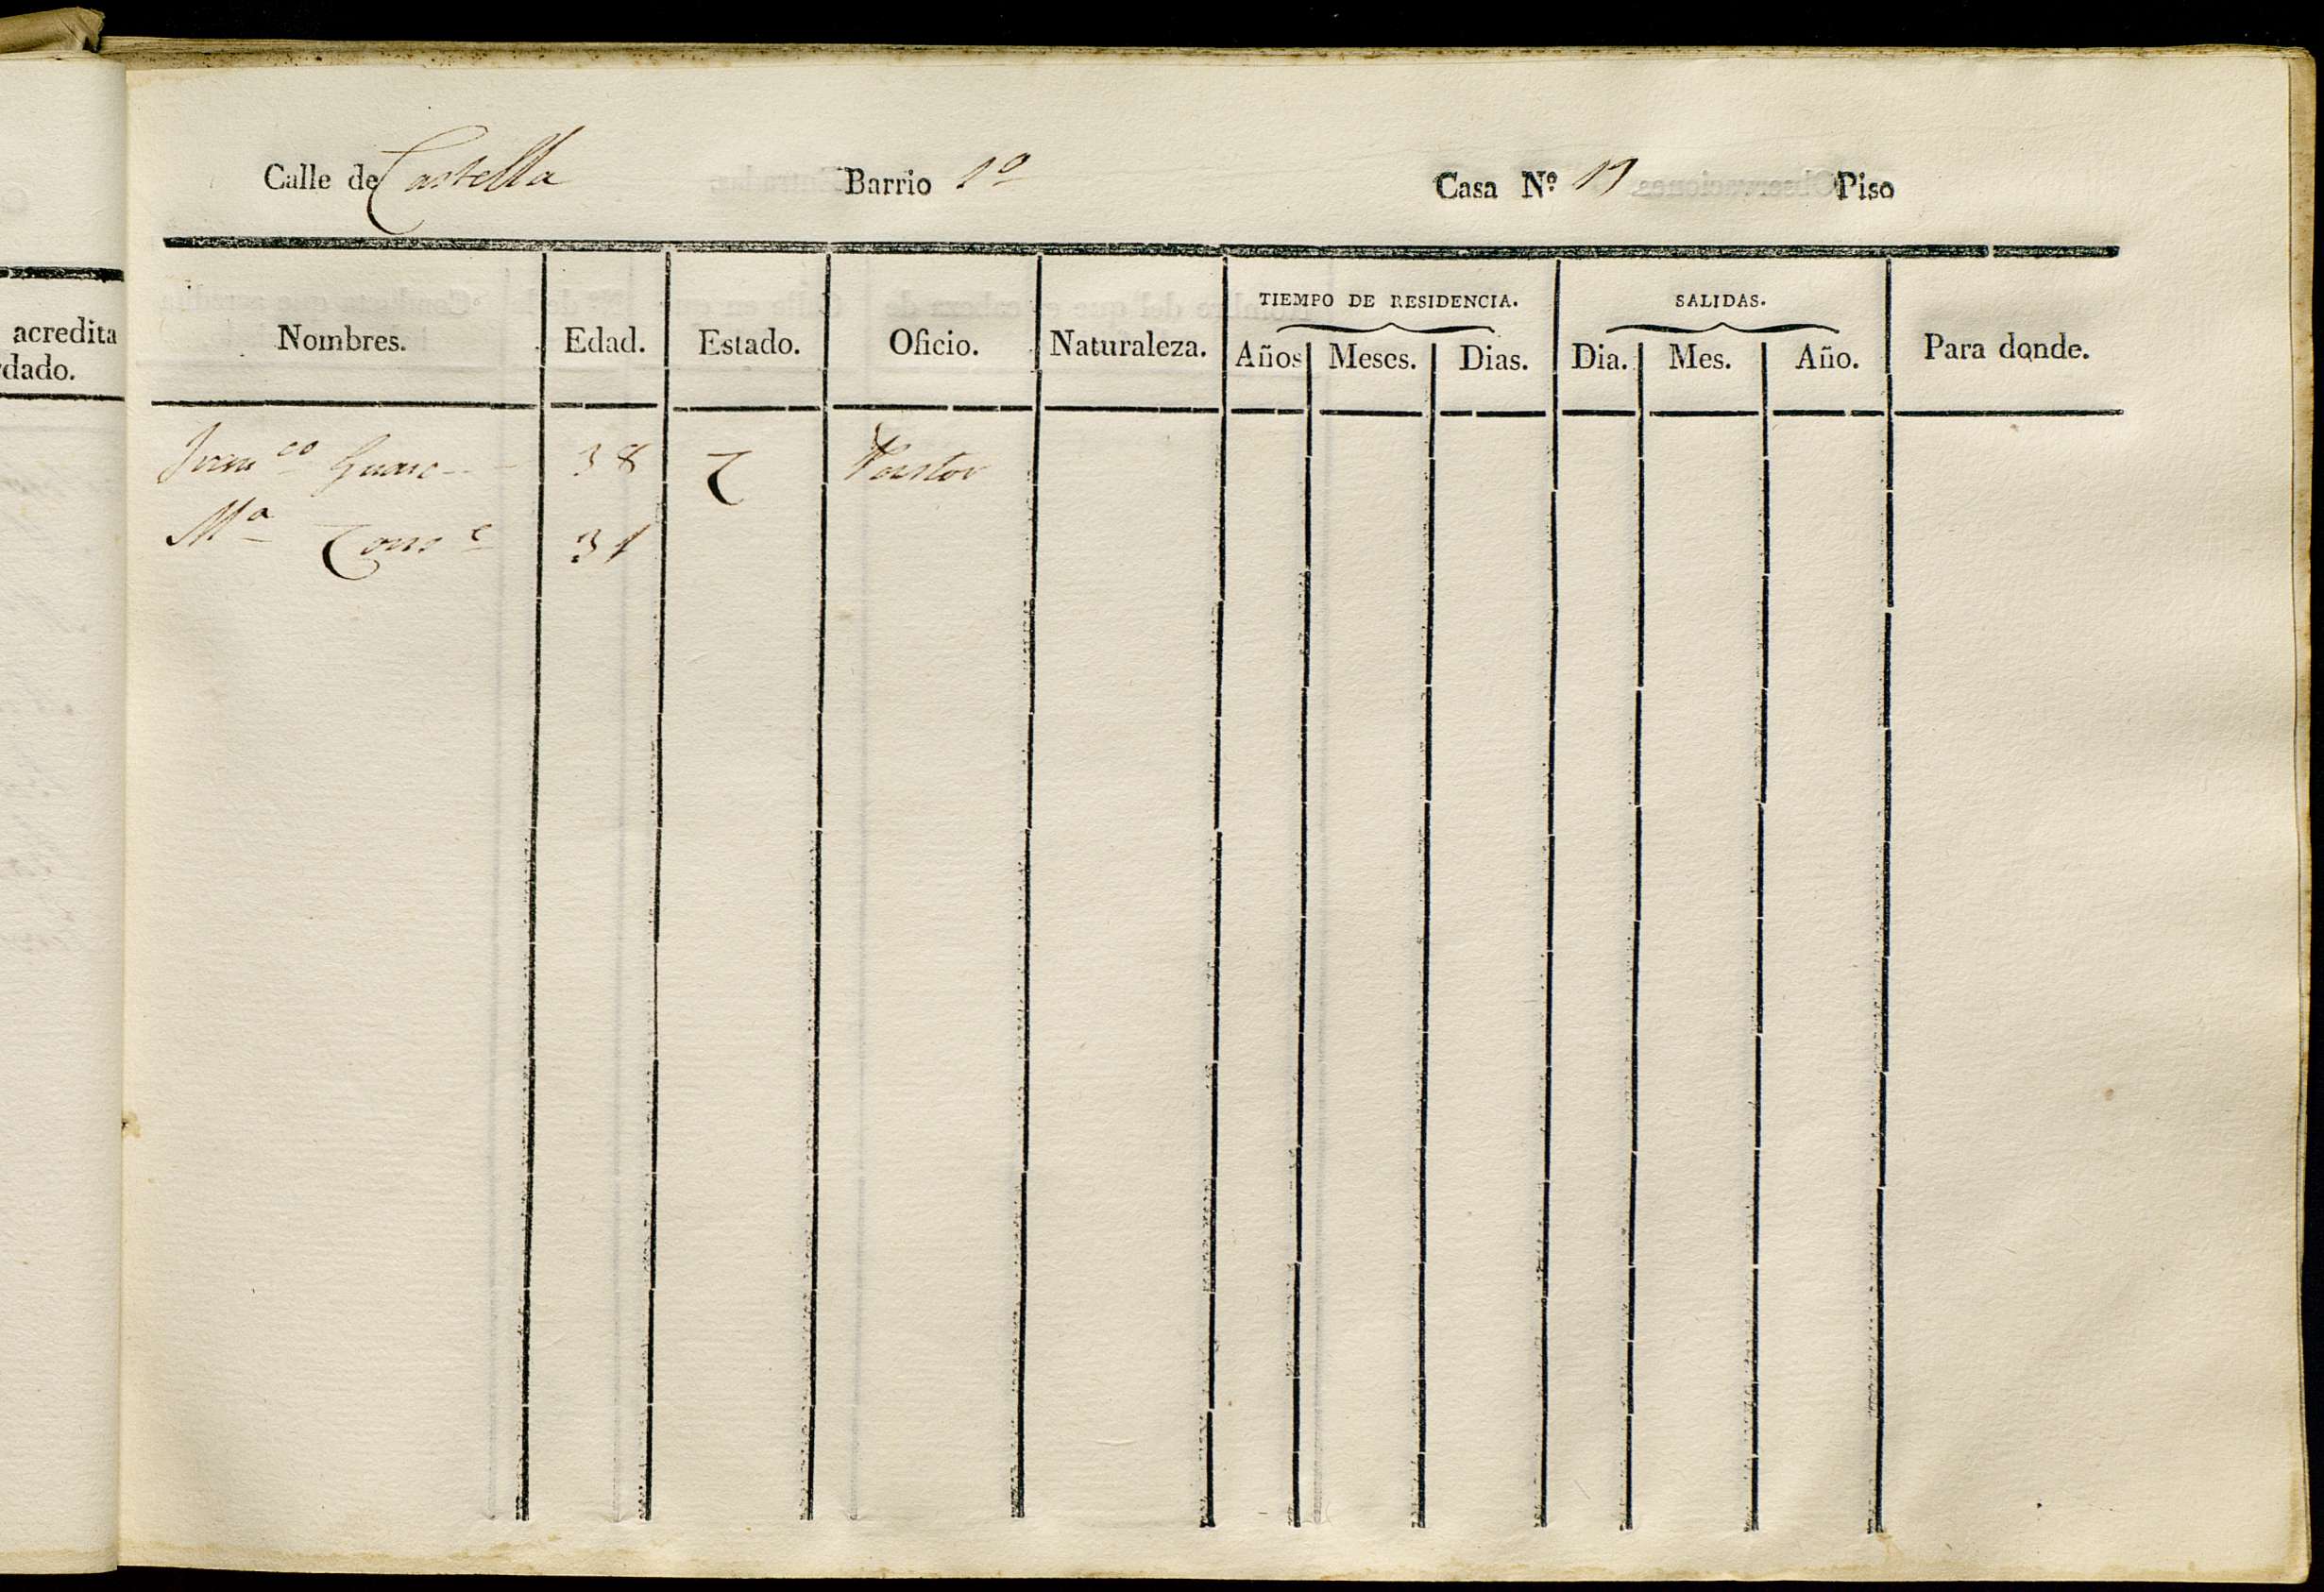 Calle de Castella Barrio 1º Casa Nº Piso
acredita
dado.
Nombres. Edad. Estado. Oficio. Naturaleza. TIEMPO DE RESIDENCIA. SALIDAS. Para donde.
Años Meses. Dias. Dia. Mes. Año.
Franco 38 C Pastor
Mª 31